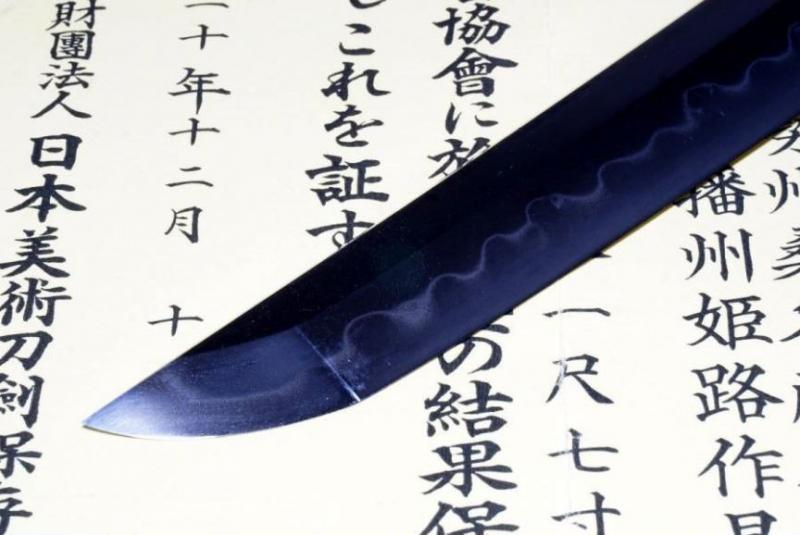 州桑
播州姫路作
一尺七寸
協會に の結果保
しこれを証す
十年十二月 十
財團法人日本美術刀劍保存